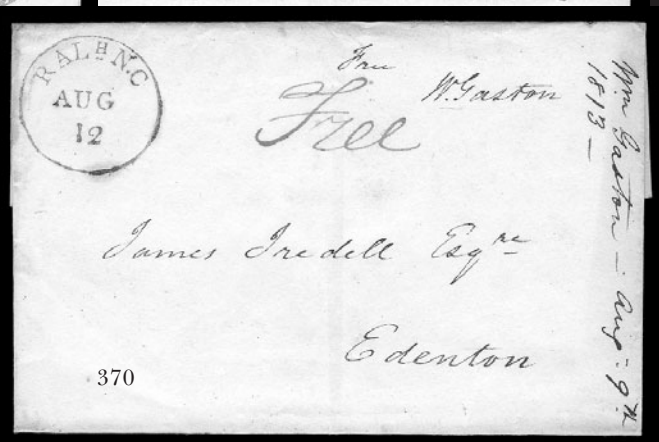 RALH N.C
AUG
12
Free
W. Gaston
Free
James Iredell Esqre
Edenton
Wm Gaston — Aug. 9th
1813 —
370